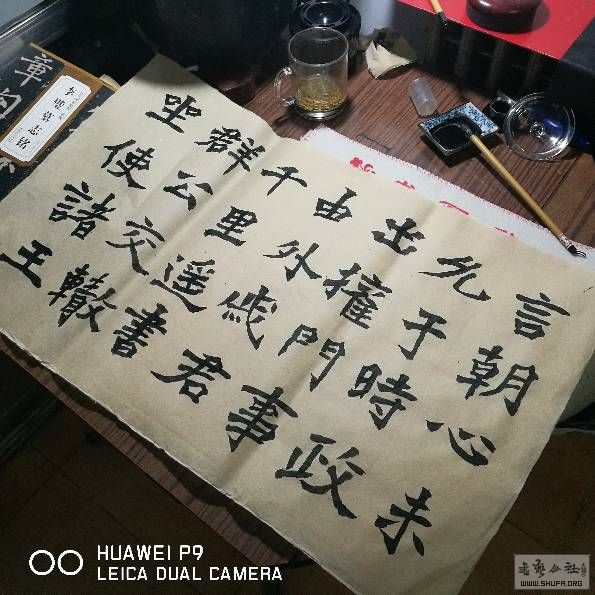 言朝心未
允于時政
出權門事
由外戚君
千里遥書
群公交轍
坐使諸王
李璧墓志铭
HUAWEI P9
LEICA DUAL CAMERA
WWW.SHUFA.ORG